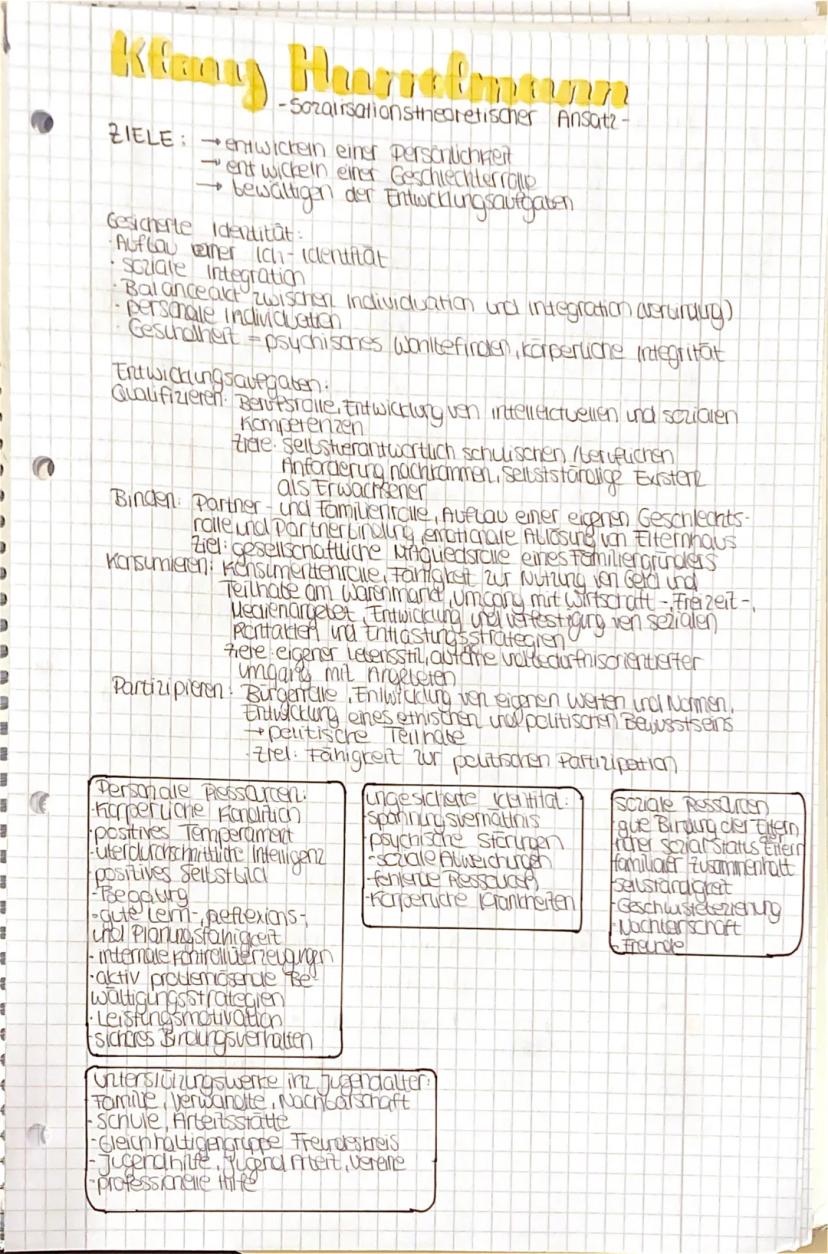 Klaus Hurrelmann
-Sozialisationstheoretischer Ansatz-
ZIELE: → entwickeln einer Persönlichkeit
→ entwickeln einer Geschlechterrolle
→ bewältigen der Entwicklungsaufgaben
Gesicherte Identität:
· Aufbau einer Ich-Identität
· soziale Integration
· Balanceakt zwischen Individuation und Integration
· personale Individuation
· Gesundheit = psychisches Wohlbefinden, körperliche Integrität
Entwicklungsaufgaben:
Qualifizieren: Berufsrolle, Entwicklung von intellektuellen und sozialen
Kompetenzen
Ziele: selbstverantwortlich schulischen / beruflichen
Anforderung nachkommen, selbstständige Existenz
als Erwachsener
Binden: Partner- und Familienrolle, Aufbau einer eigenen Geschlechts-
rolle und Partnerbindung, emotionale Ablösung von Elternhaus
Ziel: gesellschaftliche Mitgliedsrolle eines Familiengründers
Konsumieren: Konsumentenrolle, Fähigkeit zur Nutzung von Geld und
Teilhabe am Warenmarkt, Umgang mit Wirtschaft-, Freizeit-,
Medienangebot, Entwicklung und Verfestigung von sozialen
Kontakten und Entlastungsstrategien
Ziele: eigener Lebensstil,
Umgang mit Angeboten
Partizipieren: Bürgerrolle, Entwicklung von eigenen Werten und Normen,
Entwicklung eines ethischen und politischen Bewusstseins
→ politische Teilhabe
· Ziel: Fähigkeit zur politischen Partizipation
Personale Ressourcen:
· Körperliche Kondition
· positives Temperament
· überdurchschnittliche Intelligenz
· positives Selbstbild
- Begabung
· gute Lern-, Reflexions-,
und Planungsfähigkeit
· internale Kontrollüberzeugungen
· aktiv problemlösende Be
wältigungsstrategien
· Leistungsmotivation
· sicheres Bindungsverhalten
ungesicherte Identität:
· Spannungsverhältnis
psychische Störungen
- soziale Abweichungen
- fehlende Ressourcen
- körperliche Krankheiten
soziale Ressourcen
gute Bindung der Eltern
hoher Sozialstatus der Eltern
familiärer Zusammenhalt
Selbständigkeit
- Geschwisterbeziehung
- Nachbarschaft
- Freunde
Unterstützungswerke im Jugendalter:
- Familie, Verwandte, Nachbarschaft
- Schule, Arbeitsstätte
- Gleichaltrigengruppe Freundeskreis
- Jugendhilfe, Jugend Arbeit, Vereine
- professionelle Hilfe